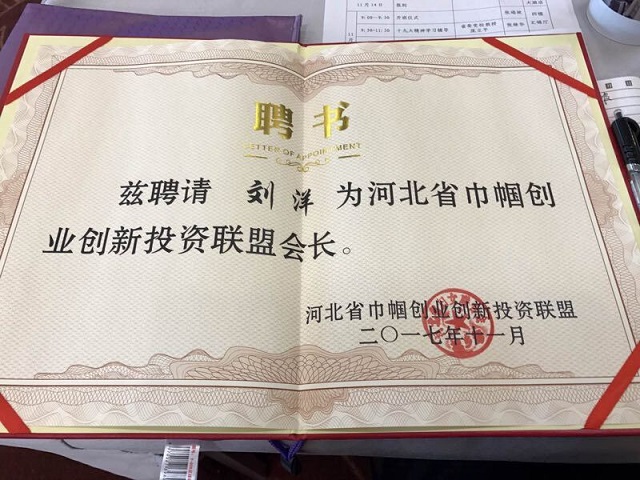 11月14日
9:00-9:30
开班仪式
9:30-11:30
十九大精神学习辅导
聘书
LETTER OF APPOINTMENT
兹聘请 刘洋 为河北省巾帼创
业创新投资联盟会长。
河北省巾帼创业创新投资联盟
二〇一七年十一月